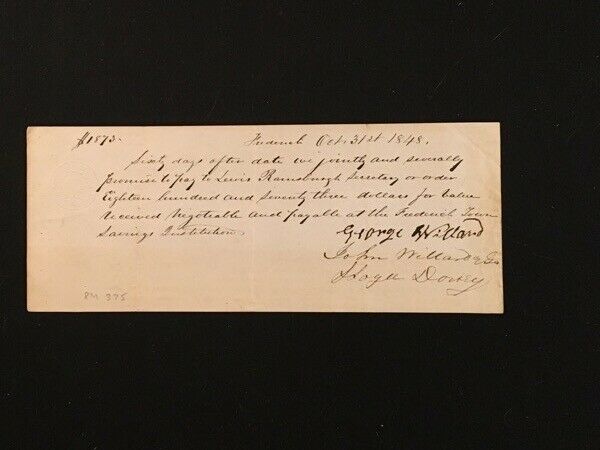 $1873.- Frederick Oct. 31st 1848.
Sixty days after date we jointly and severally
promise to pay to Lewis Ramsburgh Secretary or order
Eighteen hundred and seventy three dollars for value
received Negotiable and payable at the Frederick Town
Savings Institution
George Willard
John Willard of Geo
Lloyd Dorsey
PM 375